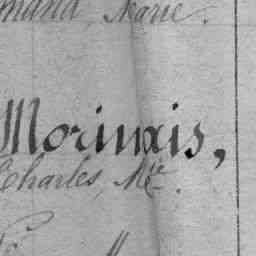 mand, Marie.
Morinais,
Charles, Mie.